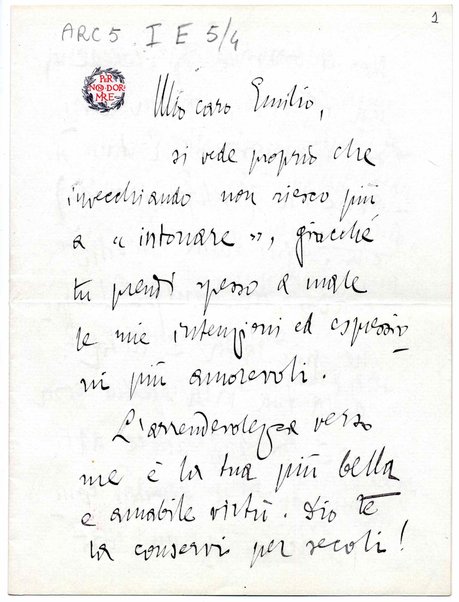 1
ARC 5. I E 5/4
PER
NON DOR
MIRE
Mio caro Emilio,
si vede proprio che
invecchiando non riesco più
a « intonare », giacché
tu prendi spesso a male
le mie intenzioni ed espressio
ni più amorevoli.
L'arrendevolezza verso
me è la tua più bella
e amabile virtù. Dio te
la conservi per secoli!